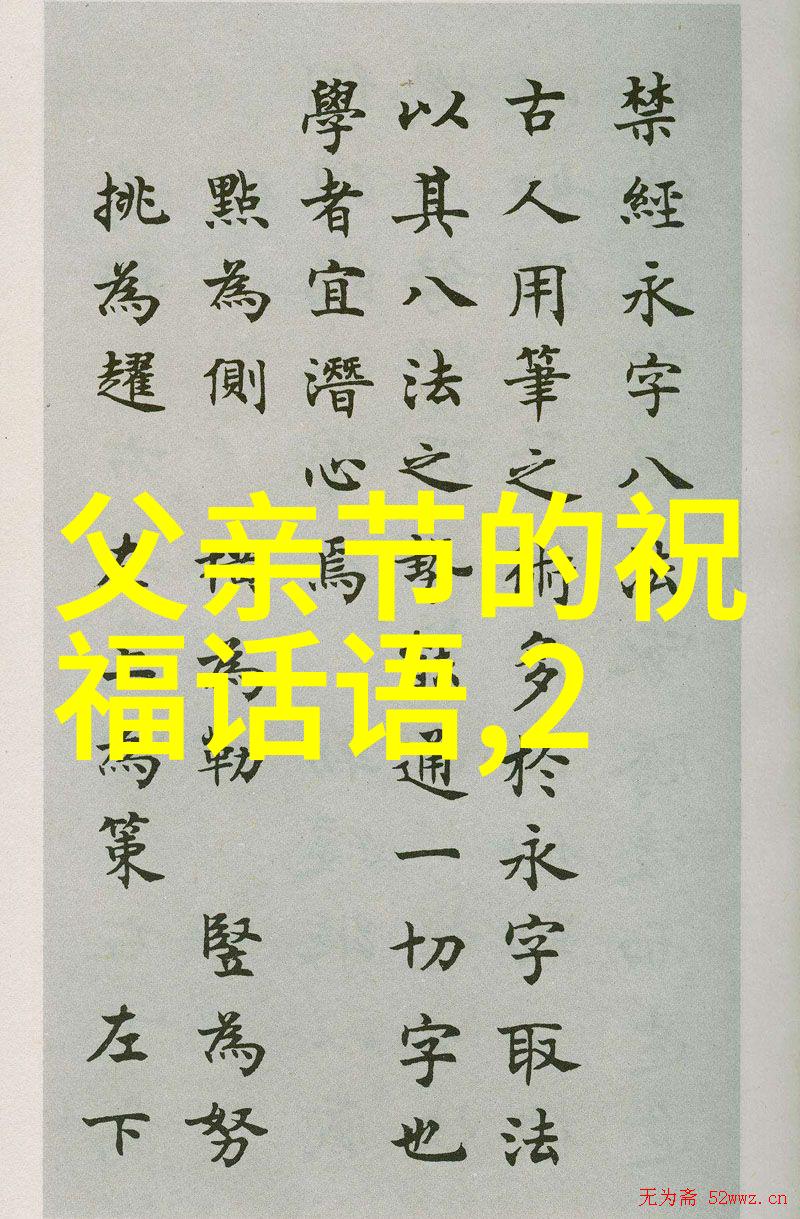 禁經永字八法
古人用筆之術多於永字取法
以其八法之勢能通一切字也
學者宜潛心焉
點為側 橫為勒 豎為努
挑為趯 左上為策 左下
父亲节的祝
福话语,2
无为斋 52wwz.cn